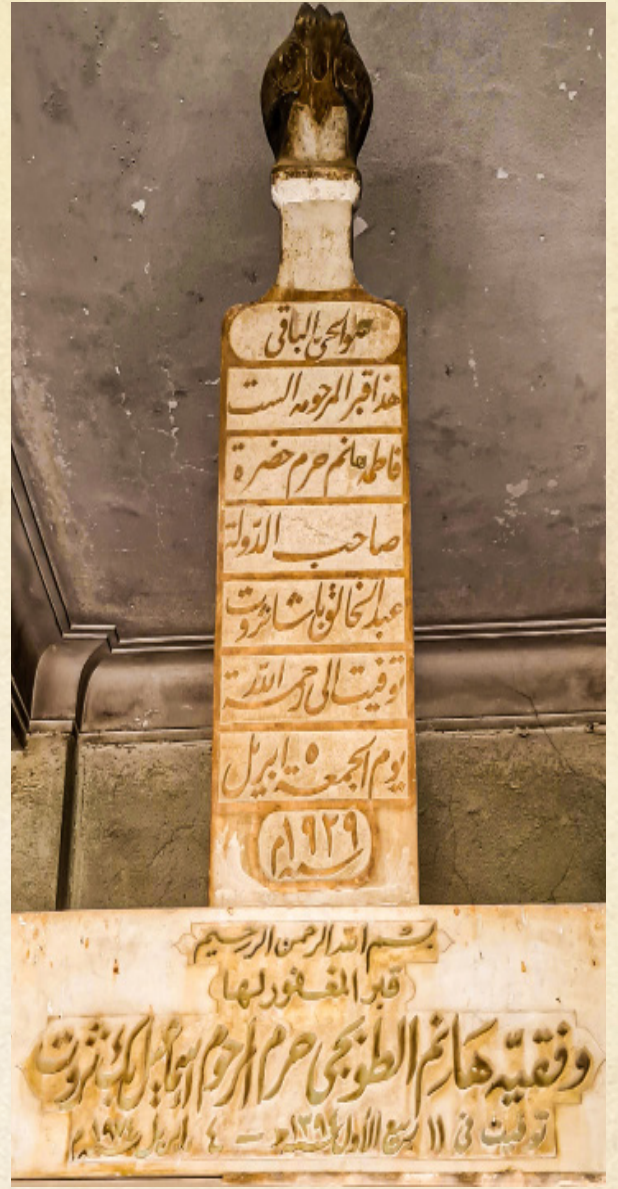 هو الحي الباقي
هذا قبر المرحومه الست
فاطمه هانم حرم حضرة
صاحب الدولة
عبد الخالق باشا ثروت
توفيت الى رحمة الله
يوم الجمعة ٥ ابريل
سنة ١٩٢٩م
بسم الله الرحمن الرحيم
قبر المغفور لها
وفقيه هانم الطوبجي حرم المرحوم اسماعيل بك ثروت
توفيت في ١١ ربيع الأول سنة